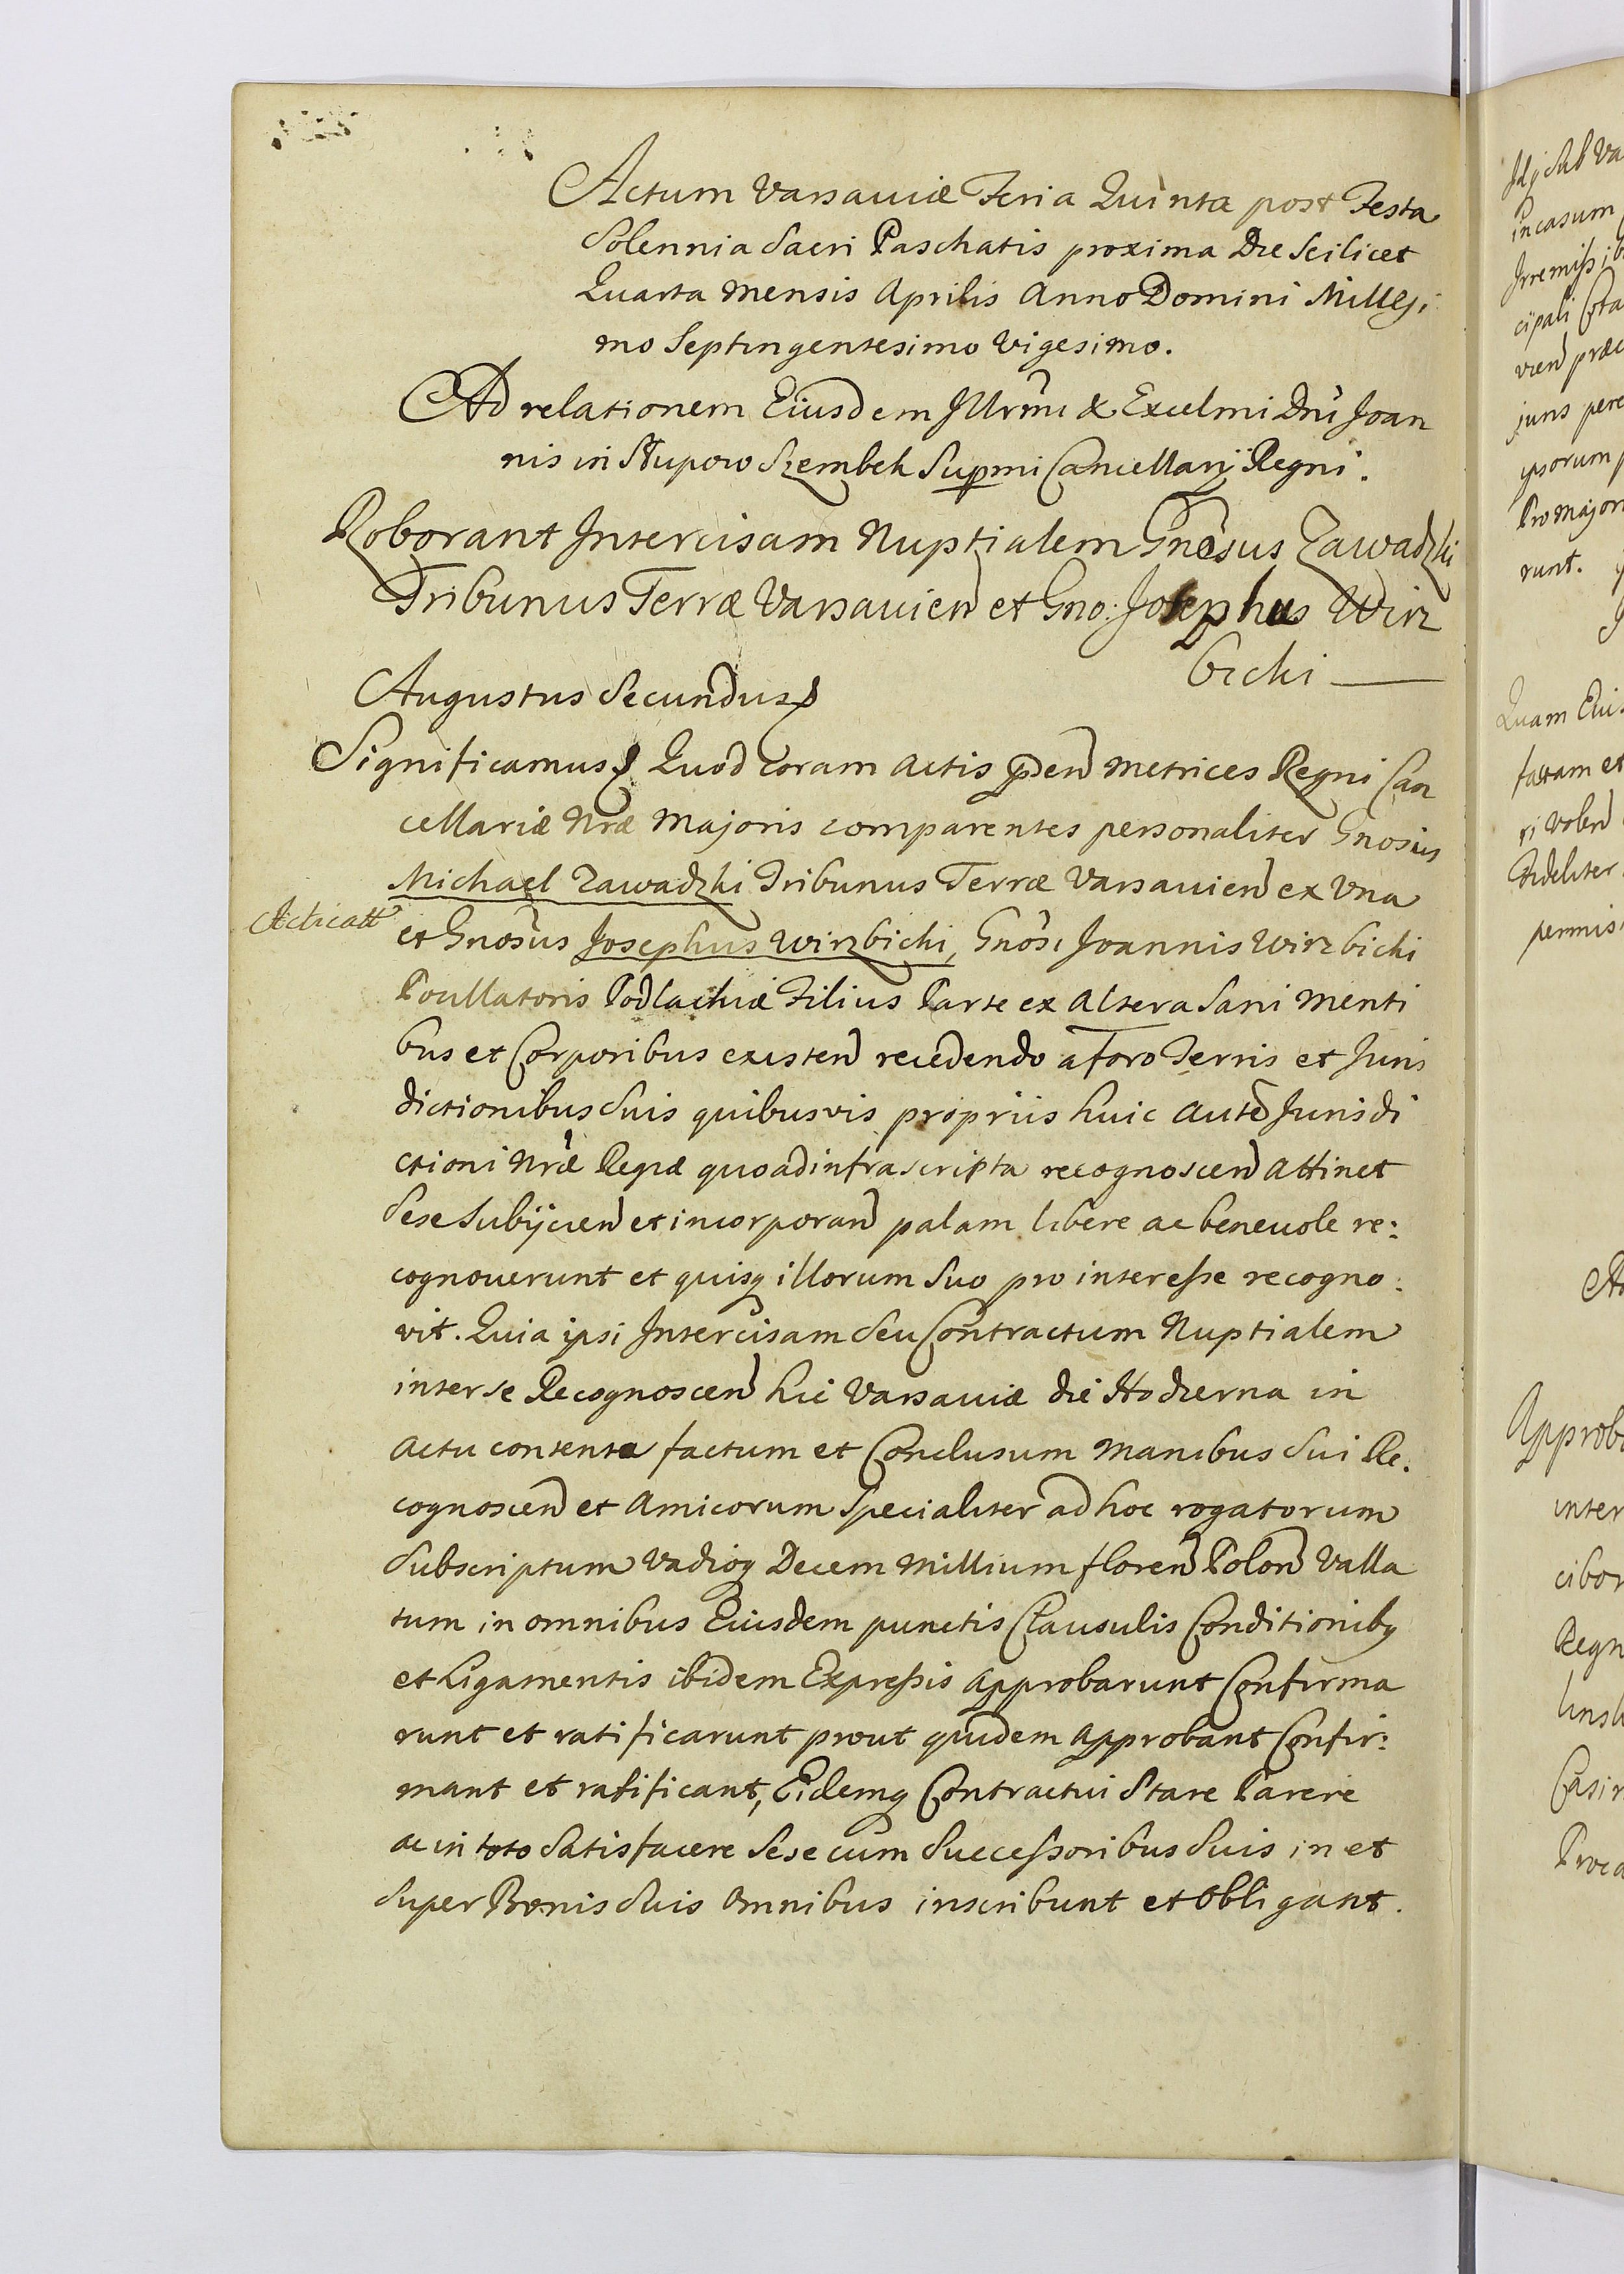 Actum Varsaviæ Feria Quinta post Festa
Solennia Sacri Paschatis proxima Die Scilicet
Quarta Mensis Aprilis Anno Domini Millesi
mo Septingentesimo Vigesimo.
Ad relationem Eiusdem Illrmi & Excelmi Dni Joan
nis in Słupow Szembek Supmi Cancellarij Regni.
Roborant Intercisam Nuptialem Gnosus Zawadzki
Tribunus Terræ Varsavien et Gno: Josephus Wirz
bicki —
Augustus Secundus
Significamus Quod coram Actis pden Metrices Regni Can
cellariæ Nræ Majoris comparentes personaliter Gnosus
Michael Zawadzki Tribunus Terræ Varsavien ex Una
Acticatt
et Gnosus Josephus Wirzbicki, Gnosi Joannis Wirzbicki
Pocillatoris Podlachiæ Filius Parte ex Altera Sani Menti
bus et Corporibus existen recedendo a Foro Terris et Juris
dictionibus Suis quibusvis propriis huic aute Jurisdi
ctioni Nræ Regiæ quoad infrascripta recognoscen attinet
Sese Subijcien et incorporan palam libere ac benevole re:
cognoverunt et quisq illorum Suo pro interesse recogno:
vit. Quia ipsi Intercisam Seu Contractum Nuptialem
inter se Recognoscen hic Varsaviæ die Hodierna in
actu contenta factum et Conclusum Manibus Sui Re.
cognoscen et Amicorum Specialiter ad hoc rogatorum
Subscriptum Vadioq Decem Millium floren Polon Valla
tum in omnibus Eiusdem punctis Clausulis Conditionibq
et Ligamentis ibidem Expressis Approbarunt Confirma
runt et ratificarunt prout quidem Approbant Confir:
mant et ratificant, Eidemq Contractui Stare Parere
ac in toto Satisfacere Sese cum Successoribus Suis in et
Super Bonis Suis Omnibus inscribunt et Obligant.